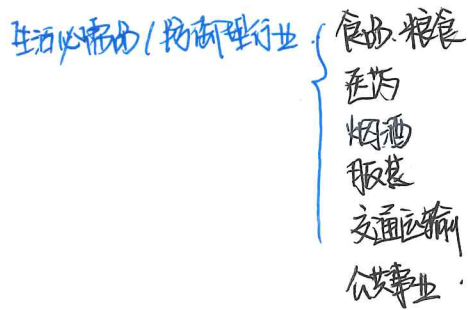 生活必需品/防御型行业.
食品、粮食
医药
烟酒
服装
交通运输
公共事业.